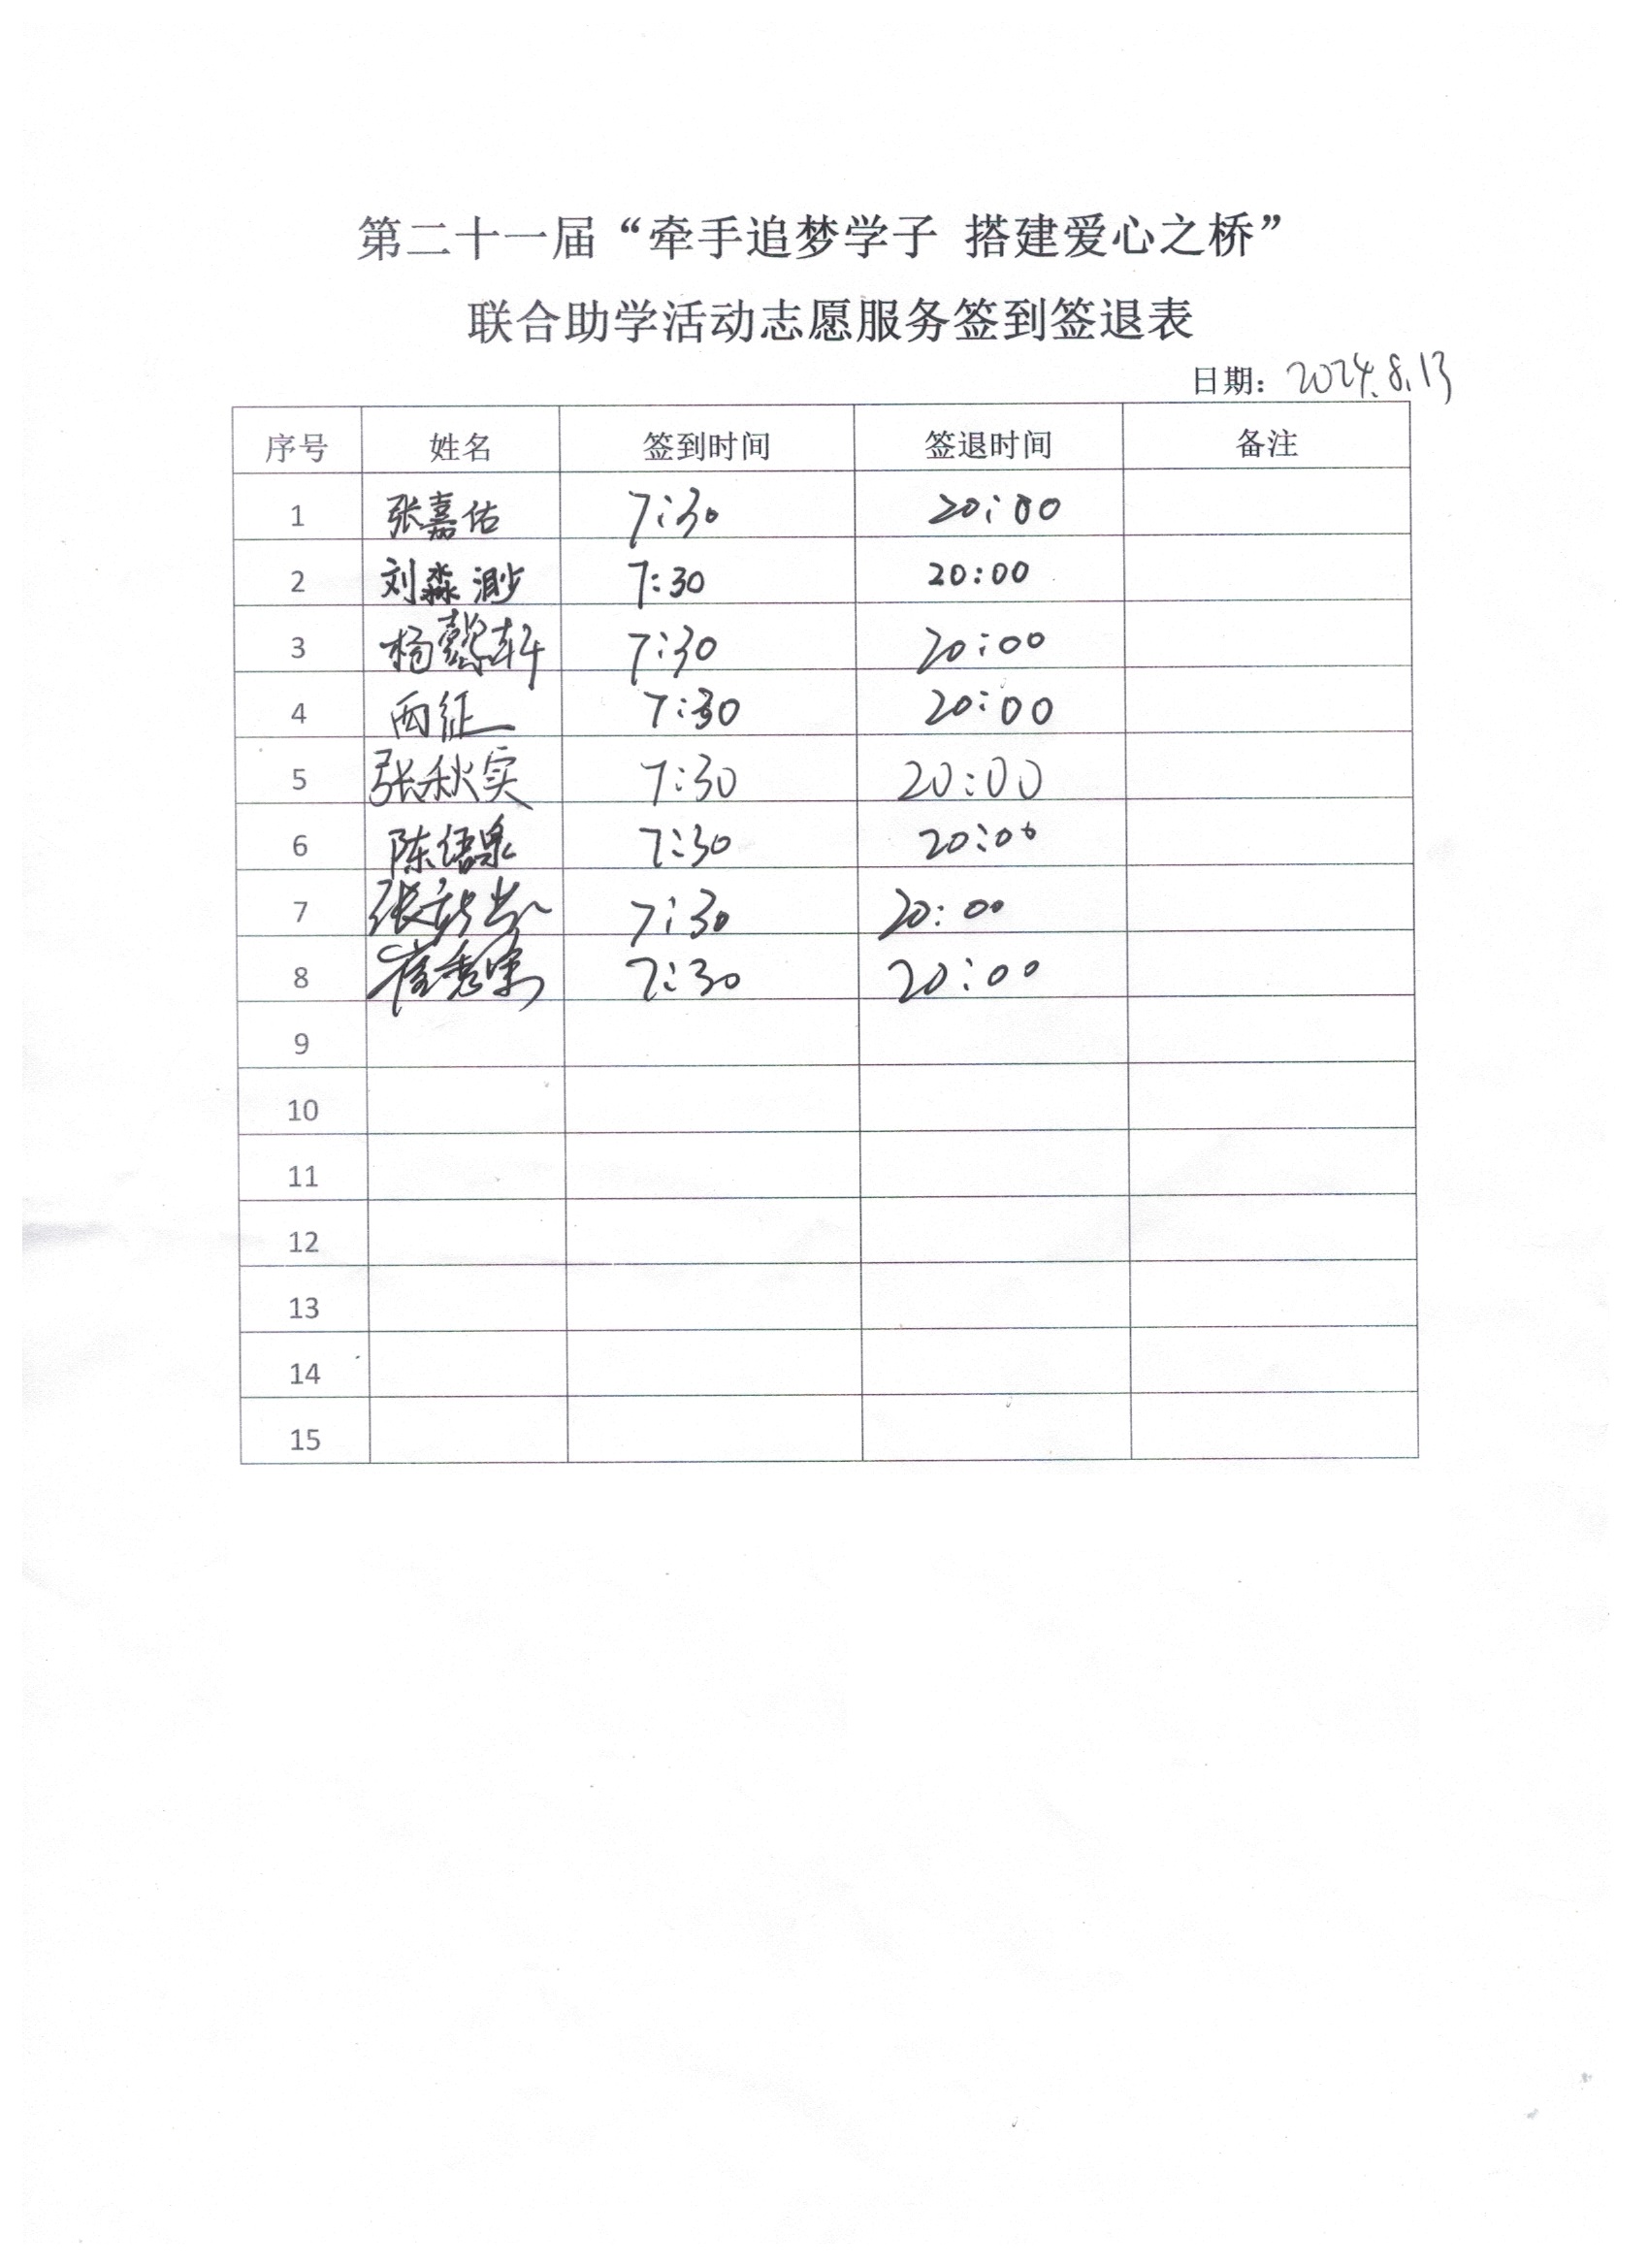 第二十一届“牵手追梦学子 搭建爱心之桥”
联合助学活动志愿服务签到签退表
日期：2024.8.13
序号 姓名 签到时间 签退时间 备注
1 张嘉佑 7:30 20:00
2 刘淼渺 7:30 20:00
3 杨懿轩 7:30 20:00
4 西征 7:30 20:00
5 张秋实 7:30 20:00
6 陈语泉 7:30 20:00
7 7:30 20:00
8 7:30 20:00
9
10
11
12
13
14
15